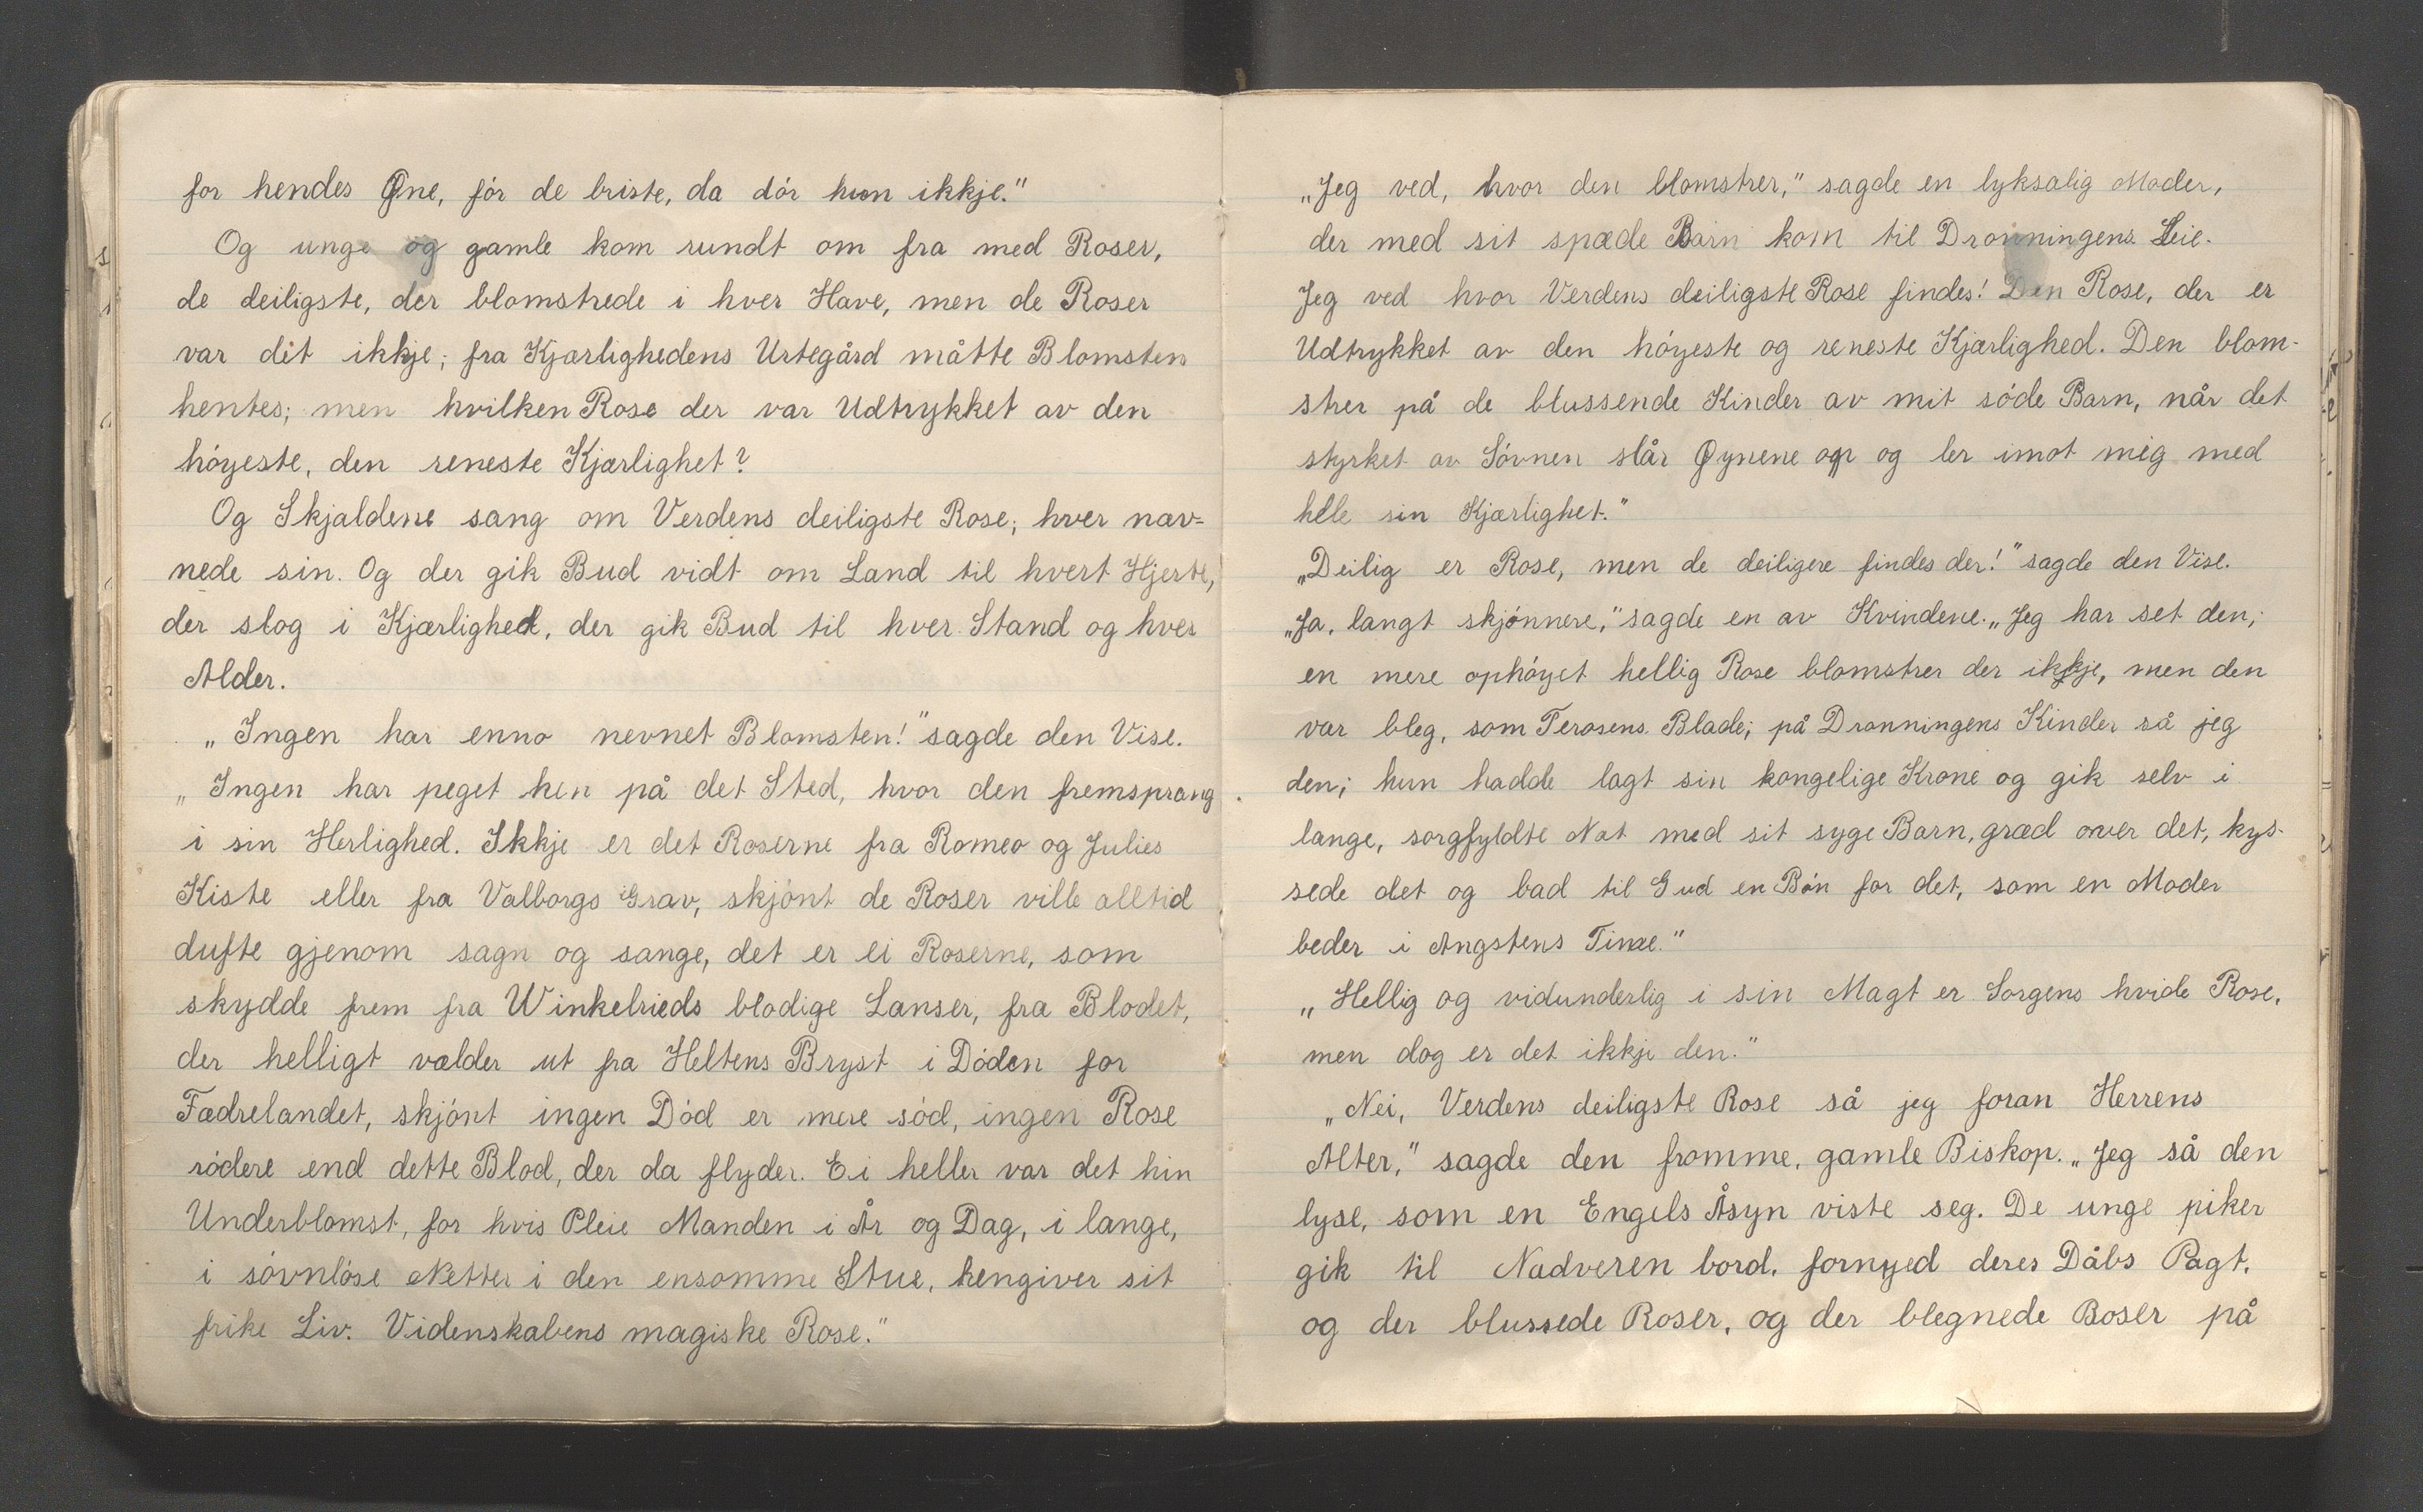 for hendes Øne, fór de briste, da dór hun ikkje."
Og unge og gamle kom rundt om fra med Roser,
de deiligste, der blomstrede i hver Have, men de Roser
var det ikkje; fra Kjærlighedens Urtegård måtte Blomsten
hentes; men hvilken Rose der var Udtrykket av den
hóyeste, den reneste Kjærlighet?
Og Skjaldene sang om Verdens deiligste Rose; hver nav=
nede sin. Og der gik Bud vidt om Land til hvert Hjerte,
der slog i Kjærlighed, der gik Bud til hver Stand og hver
Alder.
„Ingen har enno nevnet Blomsten!" sagde den Vise.
„Ingen har peget hen på det Sted, hvor den fremsprang
i sin Herlighed. Ikkje er det Roserne fra Romeo og Julies
Kiste eller fra Valborgs Grav, skjónt de Roser ville alltid
dufte gjenom sagn og sange, det er ei Roserne, som
skydde frem fra Winkelrieds blodige Lanser, fra Blodet,
der helligt vælder ut fra Heltens Bryst i Dóden for
Fædrelandet, skjónt ingen Dód er mere sód, ingen Rose
ródere end dette Blod, der da flyder. Ei heller var det hin
Underblomst, for hvis Pleie Manden i År og Dag, i lange,
i sóvnlóse Netter i den ensomme Stue, hengiver sit
frike Liv. Videnskabens magiske Rose."
„Jeg ved, hvor den blomstrer," sagde en lyksalig Moder,
der med sit spæde Barn kom til Dronningens Leie.
Jeg ved hvor Verdens deiligste Rose findes! Den Rose, der er
Udtrykket av den hóyeste og reneste Kjærlighed. Den blom-
strer på de blussende Kinder av mit sóde Barn, når det
styrket av Sóvnen slår Øynene opp og ler imot mig med
hele sin Kjærlighet."
„Deilig er Rose, men de deiligere findes der!" sagde den Vise.
„Ja, langt skjónnere," sagde en av Kvindene. „Jeg har set den;
en mere ophóyet hellig Rose blomstrer der ikkje, men den
var bleg, som Terosens Blade; på Dronningens Kinder så jeg
den; hun hadde lagt sin kongelige Krone og gik selv i
lange, sorgfyldte Nat med sit syge Barn, græd over det, kys-
sede det og bad til Gud en Bón for det, som en Moder
beder i Angstens Time."
„Hellig og vidunderlig i sin Magt er Sorgens hvide Rose,
men dog er det ikkje den."
„Nei, Verdens deiligste Rose så jeg foran Herrens
Alter," sagde den fromme, gamle Biskop. „Jeg så den
lyse, som en Engels Åsyn viste seg. De unge piker
gik til Nadveren bord, fornyed deres Dåbs Pagt,
og der blussede Roser, og der blegnede Roser på